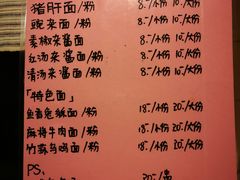 猪肝面/粉 8.-/小份 10.-/大份
豌来面/粉 8.-/小份 10.-/大份
素椒来酱面 8.-/小份 10.-/大份
红汤来酱面 8.-/小份 10.-/大份
清汤来酱面 8.-/小份 10.-/大份
「特色面」
鱼香兔狐面/粉 18.-/小份 20.-/大份
麻将牛肉面/粉 18.-/小份 20.-/大份
竹荪乌鸡面/粉 18.-/小份 20.-/大份
PS.